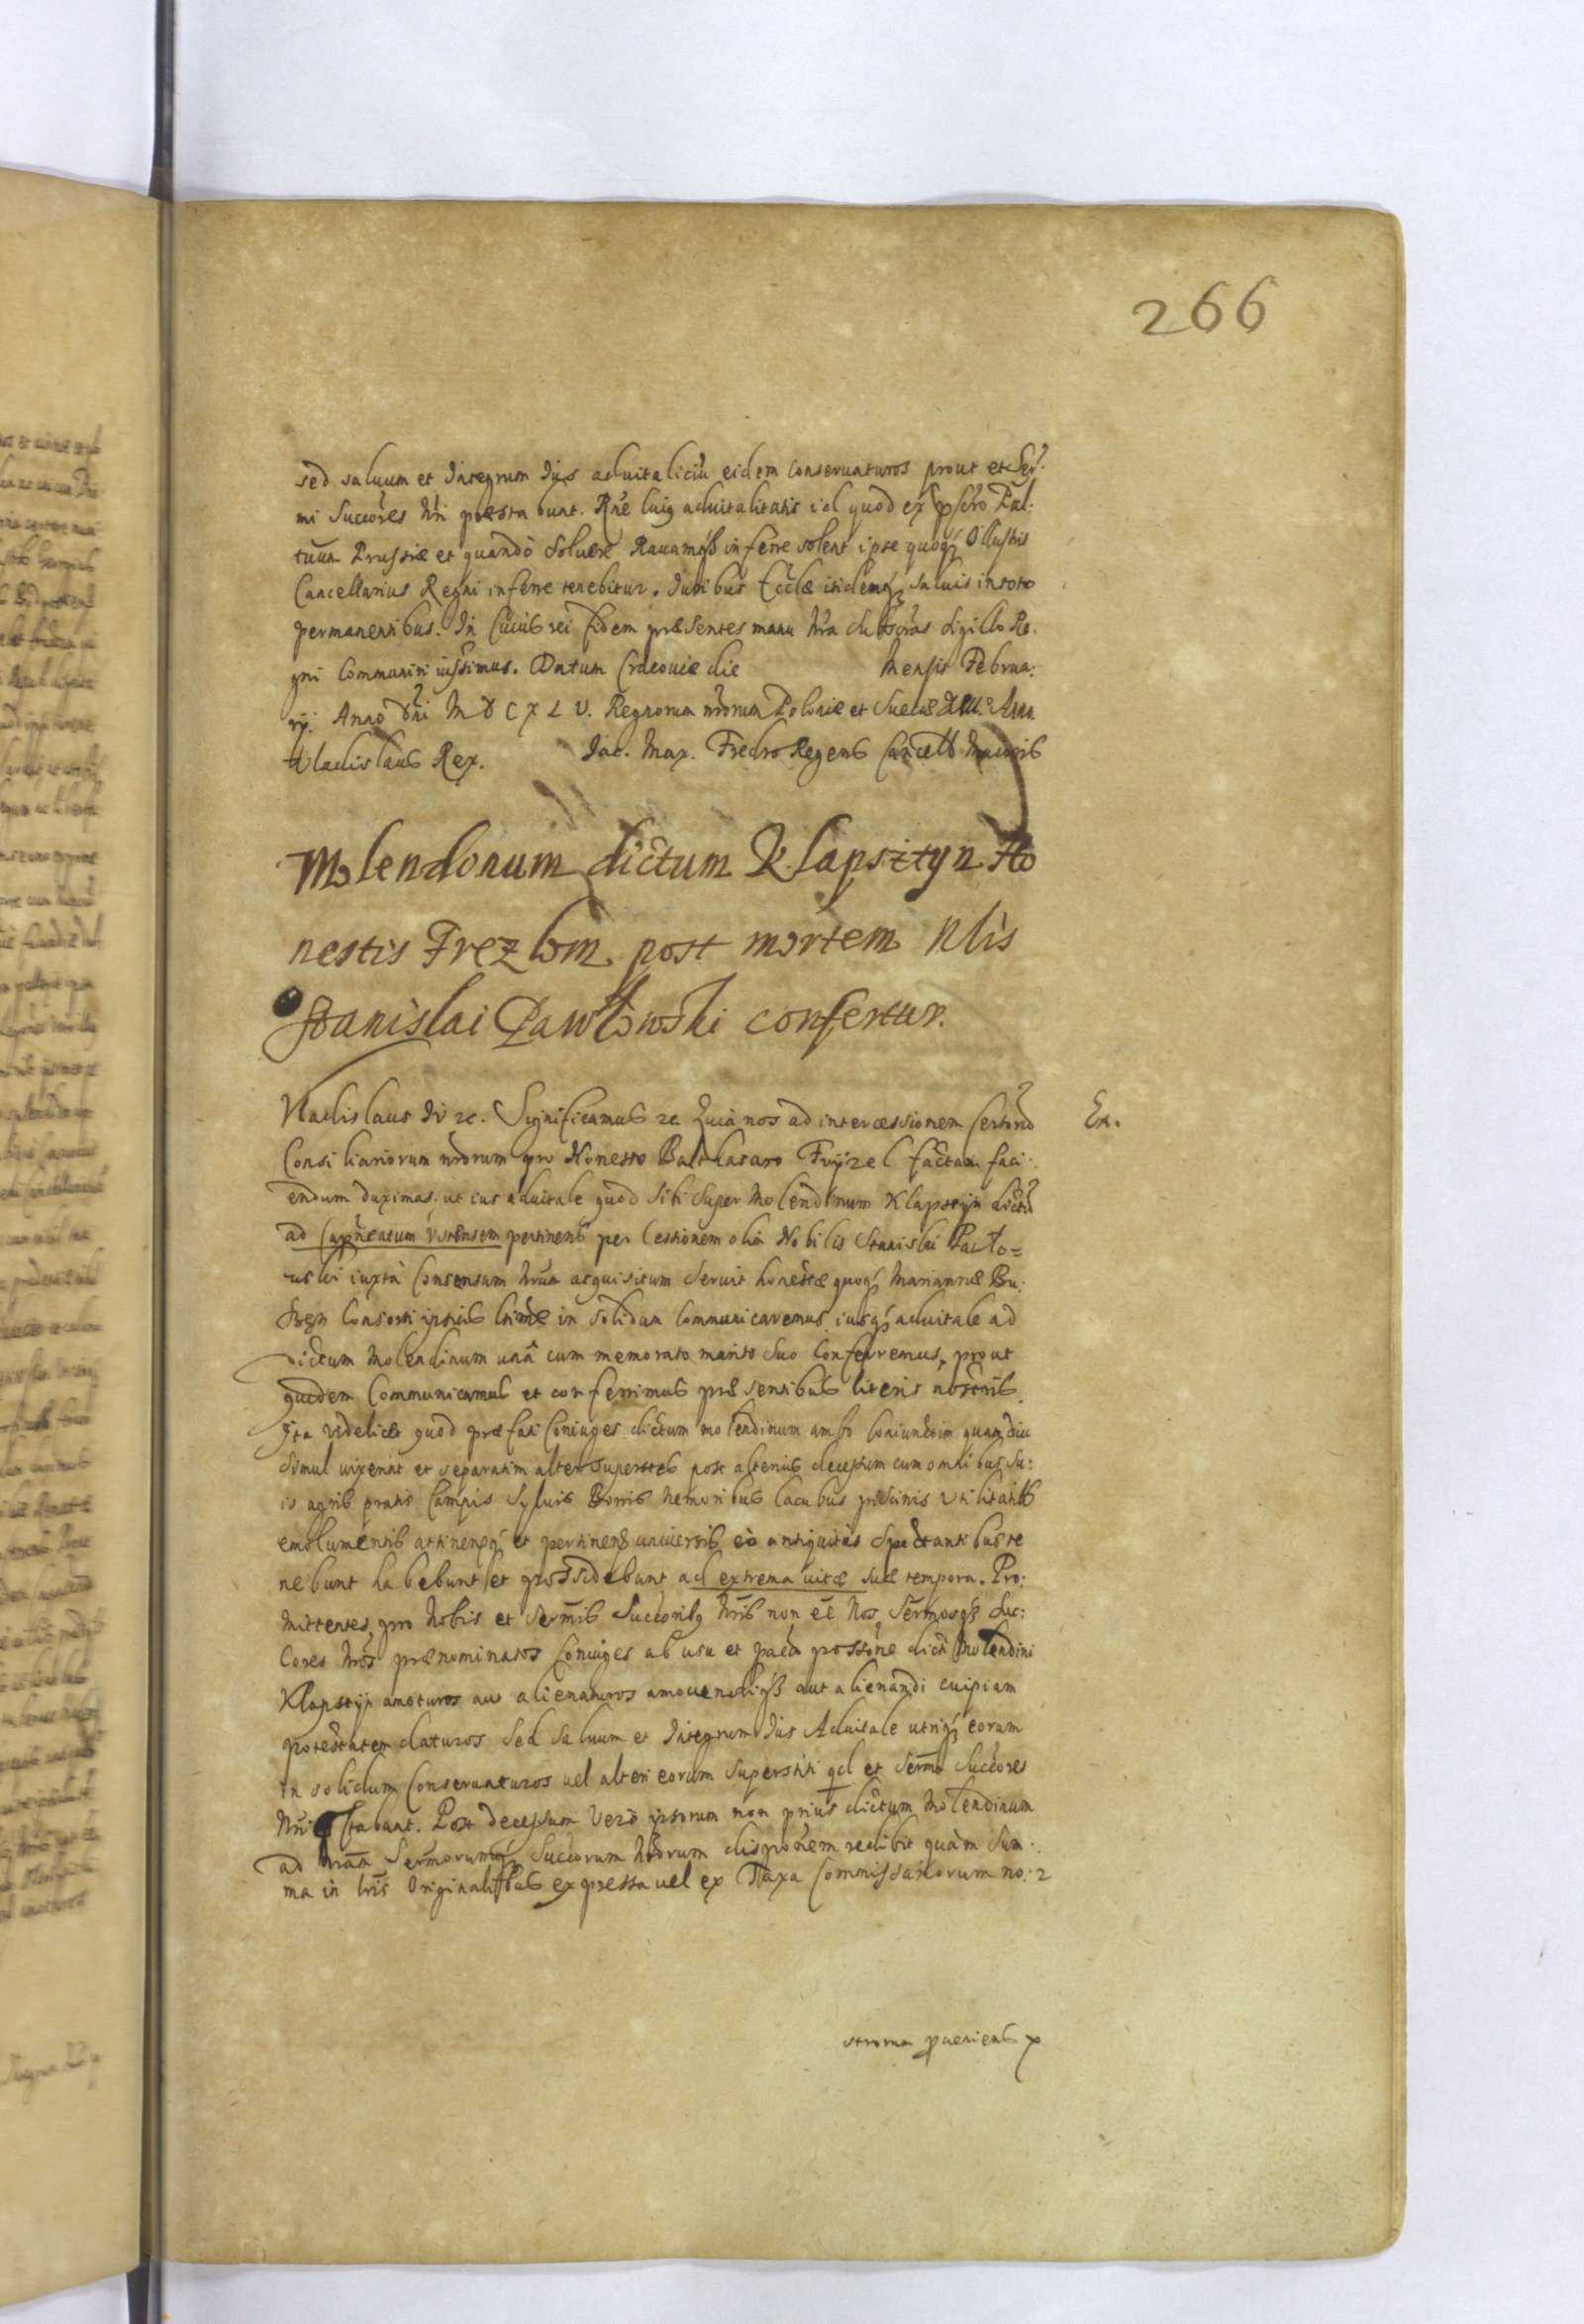 266
sed saluum et Integrum Ius aduitaliciũ eidem conseruaturos prout et Ser.
mi Succõres Nri praestabunt. Rñe huiq aduitalitatis id quod ex Pal:
Prussiæ et quando Soluere inferre solent ipse quoq Illustris
Cancellarius Regni inferre tenebitur. Iuribus Ecclæ itidemq saluis in toto
permanentibus. In Cuius rei fidem præsentes manu Nra sigillo Re.
gni Communiri iussimus. Datum Cracoviæ die mensis Februa:
rij. Anno Dni M D C X L V. Regnorum nrorum Poloniæ et Sueciæ XIII. Anno
Vladislaus Rex. Iac. Max. Fredro Regens Cancell Maioris
Molendonum dictum Klapsztyn Ho
nestis Frezlom post mortem Nlis
Stanislai Pawłowski confertur.
Vladislaus IV etc. Significamus etc Quia nos ad intercessionem Certorũ
Ex.
Consiliariorum nrorum pro Honesto Balthasaro Fryzel factam faci
endum duximus, ut ius aduitale quod sibi super Molendinum Klapstyn dictũ
ad Capneatum pertinens per Cessionem olim Nobilis Stanislai Pawło=
wski iuxta Consensum Nrum acquisitum Seruit honestæ quoq Mariannæ Bu:
Consorti ipsius ltimæ in solidum Communicaremus iusq aduitale ad
dictum Molendinum unâ cum memorato marito suo Conferremus, prout
quidem Communicamus et conferrimus præsentibus literis nostris.
Ita videlicet quod præfati Coniuges dictum molendinum ambo coniunctim quamdiu
simul vixerint et separatim alter superstes post alterius decessum cum omnibus su:
is agris pratis Campis Syluis Borris Nemoribus lacubus piscinis Vtilitatibs
emolumentis attinenq et pertinens uniuersis eò antiquitùs Spectantibus te
nebunt habebunt et possidebunt ad extrema vitæ suæ tempora. Pro:
mittentes, pro Nobis et Sermis Succõribq Nris non eẽ Nos, Sermosq Suc:
Cores Nros prænominatos Coniuges ab usu et possõne dicti Molendini
Klapstyn amoturos aut alienaturos amouendiq aut alienandi cuipiam
potestatem daturos Sed Saluum et Integrum Ius Aduitale utriq eorum
in solidum Conseruaturos uel alteri eorum Superstiti qd et Sermi Succõres
Nri pstabunt. Post decessum Verò ipsorum non priùs dictum Molendinum
ad Nram Sermorumq Succorum Nrorum disponem redibit quàm Sum
ma in lris Originalibus expressa uel ex Taxa Commissariorum no:
strorum pueniens